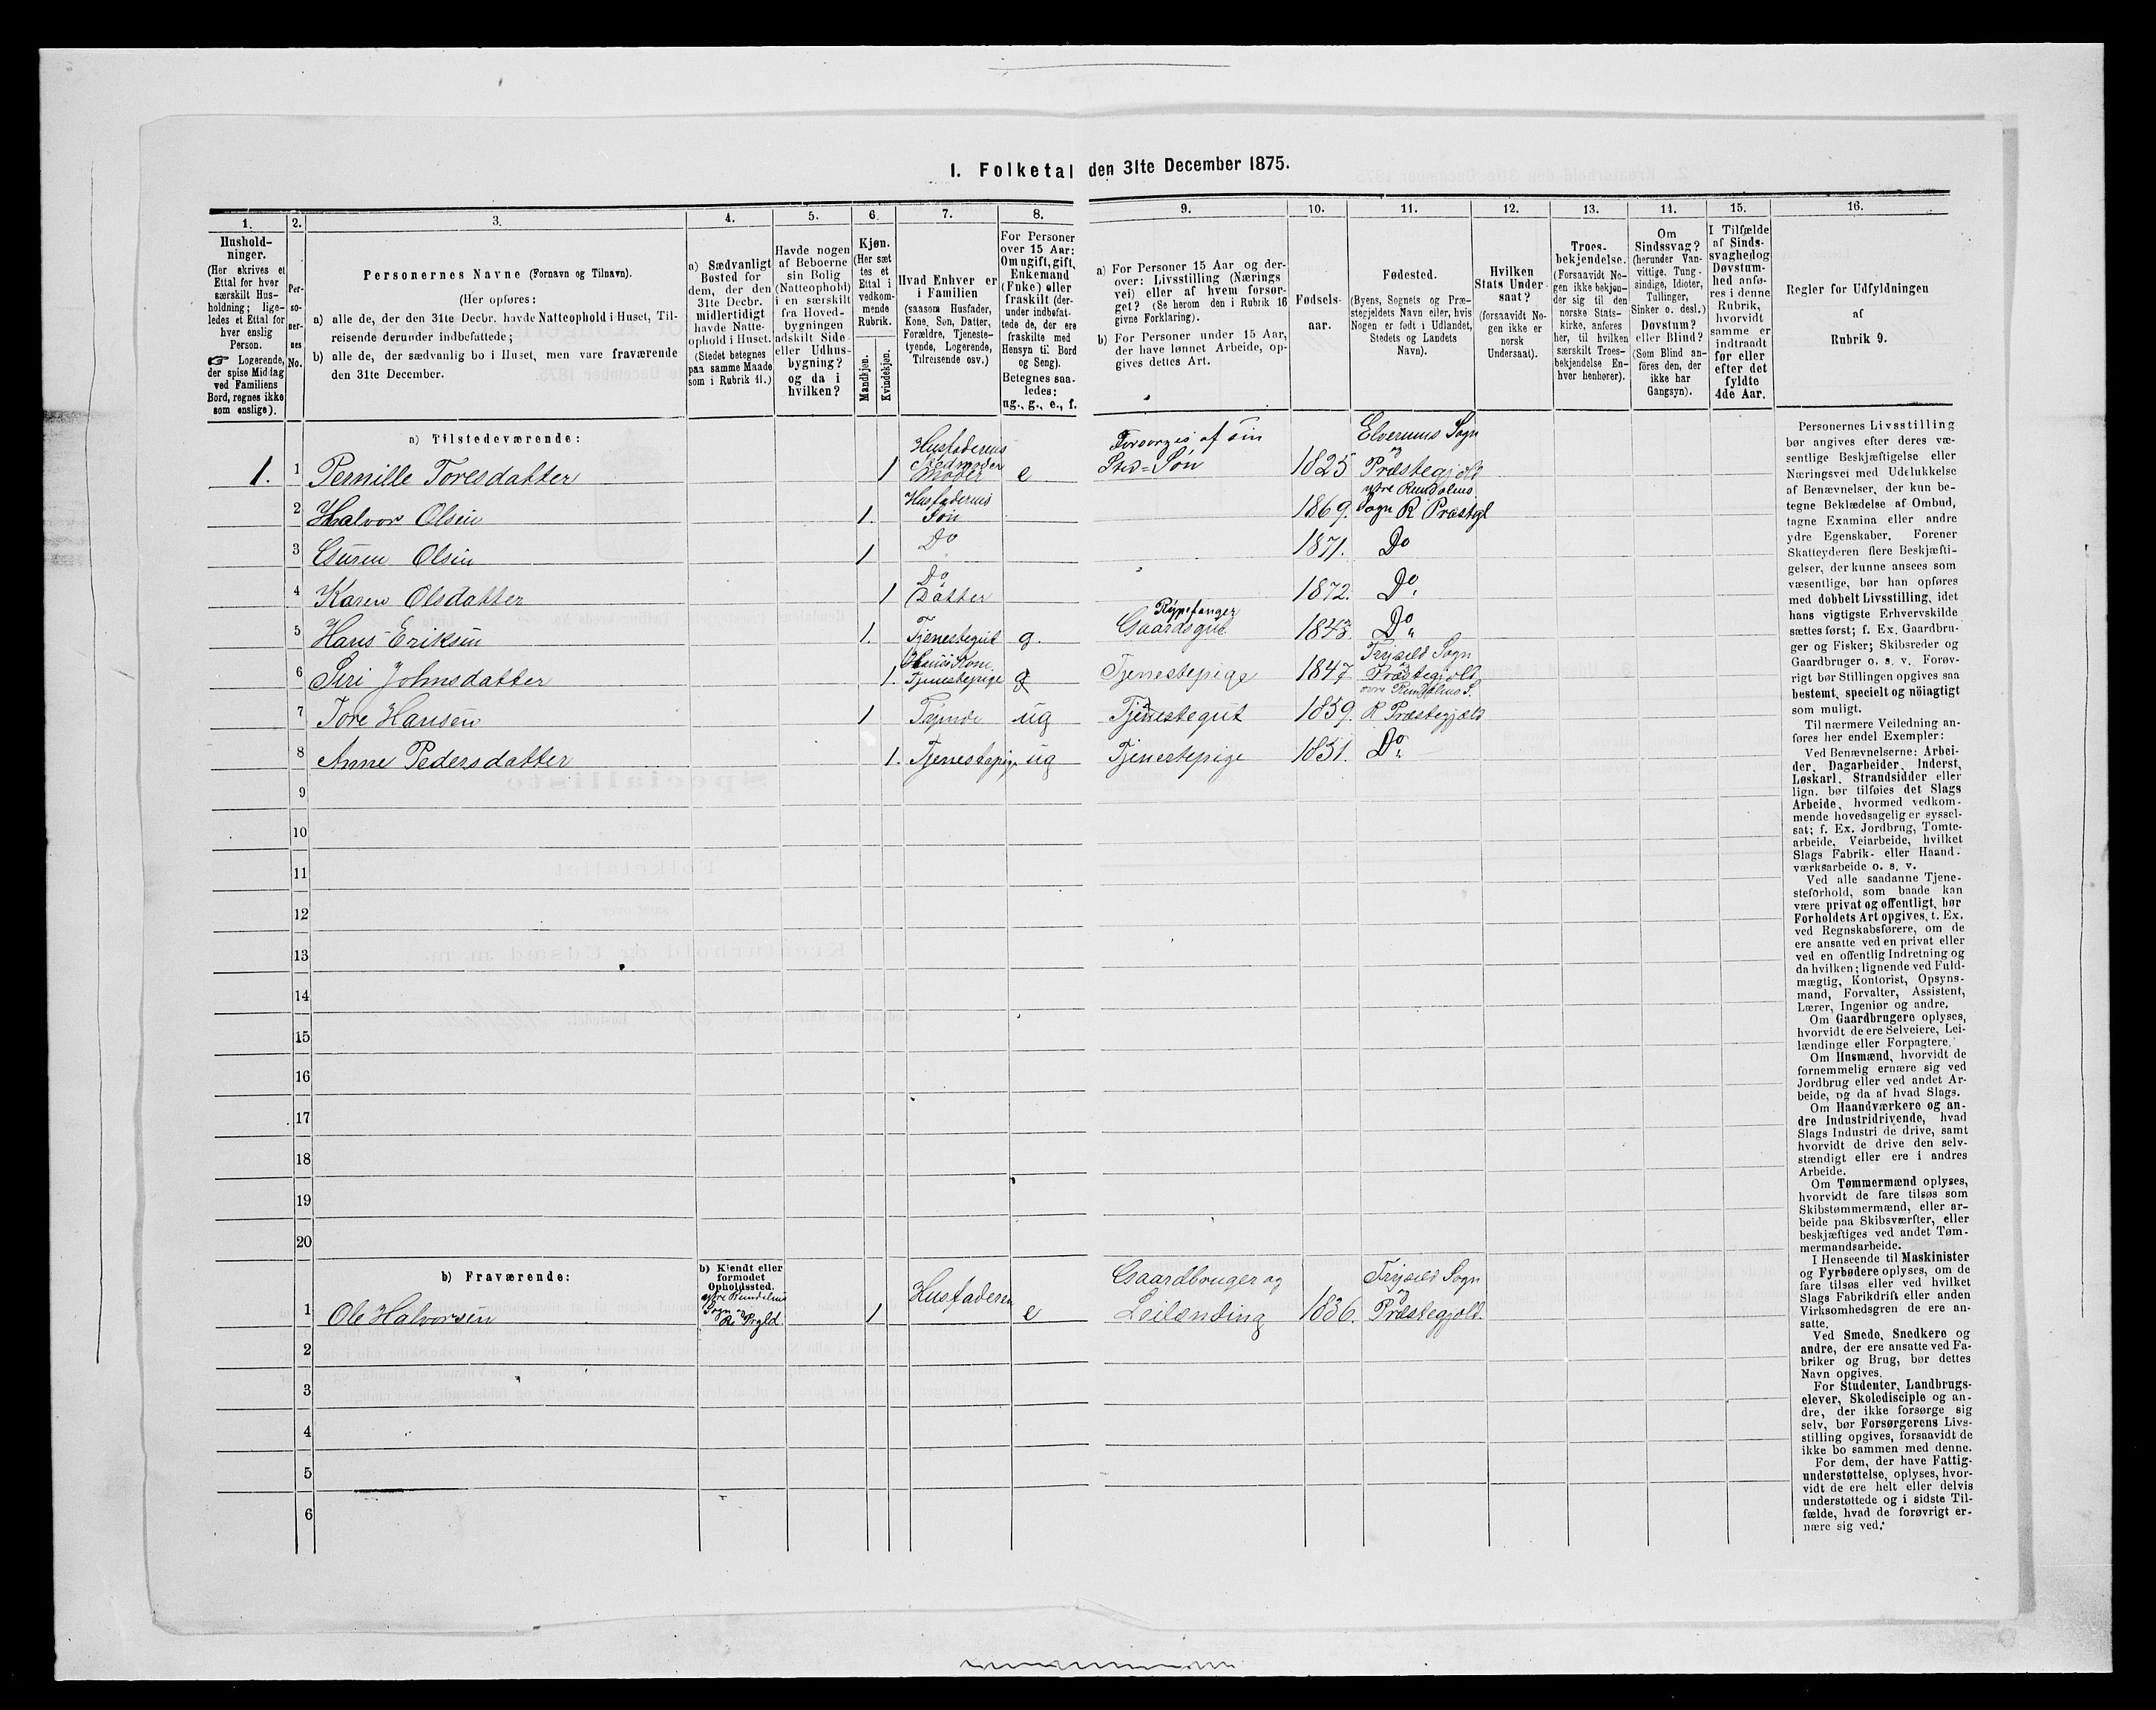 1. Folketal den 31te December 1875.
1.
Hushold-
ninger.
(Her skrives et
Ettal for hver
særskilt Hus-
holdning; lige-
ledes et Ettal for
hver enslig
Person.
☞ Logerende,
der spise Middag
ved Familiens
Bord, regnes ikke
som enslige).
2.
Per-
so-
ner-
nes
No.
3.
Personernes Navne (Fornavn og Tilnavn).
(Her opføres:
a) alle de, der den 31te Decbr. havde Natteophold i Huset, Til-
reisende derunder indbefattede;
b) alle de, der sædvanlig bo i Huset, men vare fraværende
den 31te December.
4.
a) Sædvanligt
Bosted for
dem, der den
31te Decbr.
midlertidigt
havde Natte-
ophold i Huset.
(Stedet betegnes
paa samme Maade
som i Rubrik 11.)
5.
Havde nogen
af Beboerne
sin Bolig
(Natteophold)
i en særskilt
fra Hoved-
bygningen
adskilt Side-
eller Udhus-
bygning?
og da i
hvilken?
6.
Kjøn.
(Her sæt-
tes et
Ettal i
vedkom-
mende
Rubrik.
Mandkjøn.
Kvindekjøn.
7.
Hvad Enhver er
i Familien
(saasom Husfader,
Kone, Søn, Datter,
Forældre, Tjeneste-
tyende, Logerende,
Tilreisende osv.)
8.
For Personer
over 15 Aar:
Om ugift, gift,
Enkemand
(Enke) eller
fraskilt (der-
under indbefat-
tede de, der ere
fraskilte med
Hensyn til Bord
og Seng).
Betegnes saa-
ledes:
ug., g., e., f.
9.
a) For Personer 15 Aar og der-
over: Livsstilling (Nærings-
vei) eller af hvem forsør-
get? (Se herom den i Rubrik 16
givne Forklaring).
b) For Personer under 15 Aar,
der have lønnet Arbeide, op-
gives dettes Art.
10.
Fødsels-
aar.
11.
Fødested.
(Byens, Sognets og Præ-
stegjeldets Navn eller, hvis
Nogen er født i Udlandet,
Stedets og Landets
Navn).
12.
Hvilken
Stats Under-
saat?
(forsaavidt No-
gen ikke er
norsk
Undersaat).
13.
Troes-
bekjendelse.
(Forsaavidt No-
gen ikke bekjen-
der sig til den
norske Stats-
kirke, anføres
her, til hvilken
særskilt Troes-
bekjendelse En-
hver henhører).
14.
Om
Sindssvag?
(herunder Van-
vittige, Tung-
sindige, Idioter,
Tullinger,
Sinker o. desl.)
Døvstum?
eller Blind?
(Som Blind an-
føres den, der
ikke har
Gangsyn).
15.
I Tilfælde
af Sinds-
svaghed og
Døvstum-
hed anfø-
res i denne
Rubrik,
hvorvidt
samme er
indtraadt
før eller
efter det
fyldte
4de Aar.
16.
Regler for Udfyldningen
af
Rubrik 9.
a) Tilstedeværende:
1. 1 Pernille Toresdatter 1 Husfaderens Stedmoder Moder e Forsørges af sin Sted=Søn 1825 Elverums Sogn og Præstegjeld
2 Halvor Olsen 1. Husfaderens Søn 1869. ytre Rendalens Sogn R Præstgl
3 Olsen 1 Do 1871. Do
4 Karen Olsdatter 1 Do Datter 1872. Do
5 Hans Eriksen 1. Tjenestegut g. Rypefanger Gaardsgut 1843 Do
6 Siri Johnsdatter 1. Hans Kone Tjenestepige g Tjenestepige 1847 Trysild Sogn og Præstegjeld
7 Tore Hansen 1 ug Tjenestegut 1859. øvre Rendalens S. R Præstegjeld
8 Anne Pedersdatter 1. Tjenestepige ug Tjenestepige 1851. Do
9
10
11
12
13
14
15
16
17
18
19
20
b) Fraværende:
b) Kjendt eller
formodet
Opholdssted.
1 Ole Halvorsen ytre Rendalens Sogn og R Prgld 1 Husfaderen e Gaardbruger og Leilænding 1836. Trysild Sogn og Præstegjeld.
2
3
4
5
6
Personernes Livsstilling
bør angives efter deres væ-
sentlige Beskjæftigelse eller
Næringsvei med Udelukkelse
af Benævnelser, der kun be-
tegne Beklædelse af Ombud,
tagne Examina eller andre
ydre Egenskaber. Forener
Skatteyderen flere Beskjæfti-
gelser, der kunne ansees som
væsentlige, bør han opføres
med dobbelt Livsstilling, idet
hans vigtigste Erhvervskilde
sættes først; f. Ex. Gaardbru-
ger og Fisker; Skibsreder og
Gaardbruger o. s. v. Forøv-
rigt bør Stillingen opgives saa
bestemt, specielt og nöiagtigt
som muligt.
Til nærmere Veiledning an-
føres her endel Exempler:
Ved Benævnelserne: Arbei-
der, Dagarbeider, Inderst,
Løskarl, Strandsidder eller
lign. bør tilføies det Slags
Arbeide, hvormed vedkom-
mende hovedsagelig er syssel-
sat; f. Ex. Jordbrug, Tomte-
arbeide, Veiarbeide, hvilket
Slags Fabrik- eller Haand-
værksarbeide o. s. v.
Ved alle saadanne Tjene-
steforhold, som baade kan
være privat og offentligt, bør
Forholdets Art opgives, t. Ex.
ved Regnskabsførere, om de
ere ansatte ved en privat eller
ved en offentlig Indretning og
da hvilken; lignende ved Fuld-
mægtig, Kontorist, Opsyns-
mand, Forvalter, Assistent,
Lærer, Ingeniør og andre.
Om Gaardbrugere oplyses,
hvorvidt de ere Selveiere, Lei-
lændinge eller Forpagtere.
Om Husmænd, hvorvidt de
fornemmelig ernære sig ved
Jordbrug eller ved andet Ar-
beide, og da af hvad Slags.
Om Haandværkere og an-
dre Industridrivende, hvad
Slags Industri de drive, samt
hvorvidt de drive den selv-
stændigt eller ere i andres
Arbeide.
Om Tømmermænd oplyses,
hvorvidt de fare tilsøs som
Skibstømmermænd, eller ar-
beide paa Skibsværfter, eller
beskjæftiges ved andet Tøm-
mermandsarbeide.
I Henseende til Maskinister
og Fyrbødere oplyses, om de
fare tilsøs eller ved hvilket
Slags Fabrikdrift eller anden
Virksomhedsgren de ere an-
satte.
Ved Smede, Snedkere og
andre, der ere ansatte ved Fa-
briker og Brug, bør dettes
Navn opgives.
For Studenter, Landbrugs-
elever, Skoledisciple og an-
dre, der ikke forsørge sig
selv, bør Forsørgerens Livs-
stilling opgives, forsaavidt de
ikke bo sammen med denne.
For dem, der have Fattig-
understøttelse, oplyses, hvor-
vidt de ere helt eller delvis
understøttede og i sidste Til-
fælde, hvad de forøvrigt er-
nære sig ved.